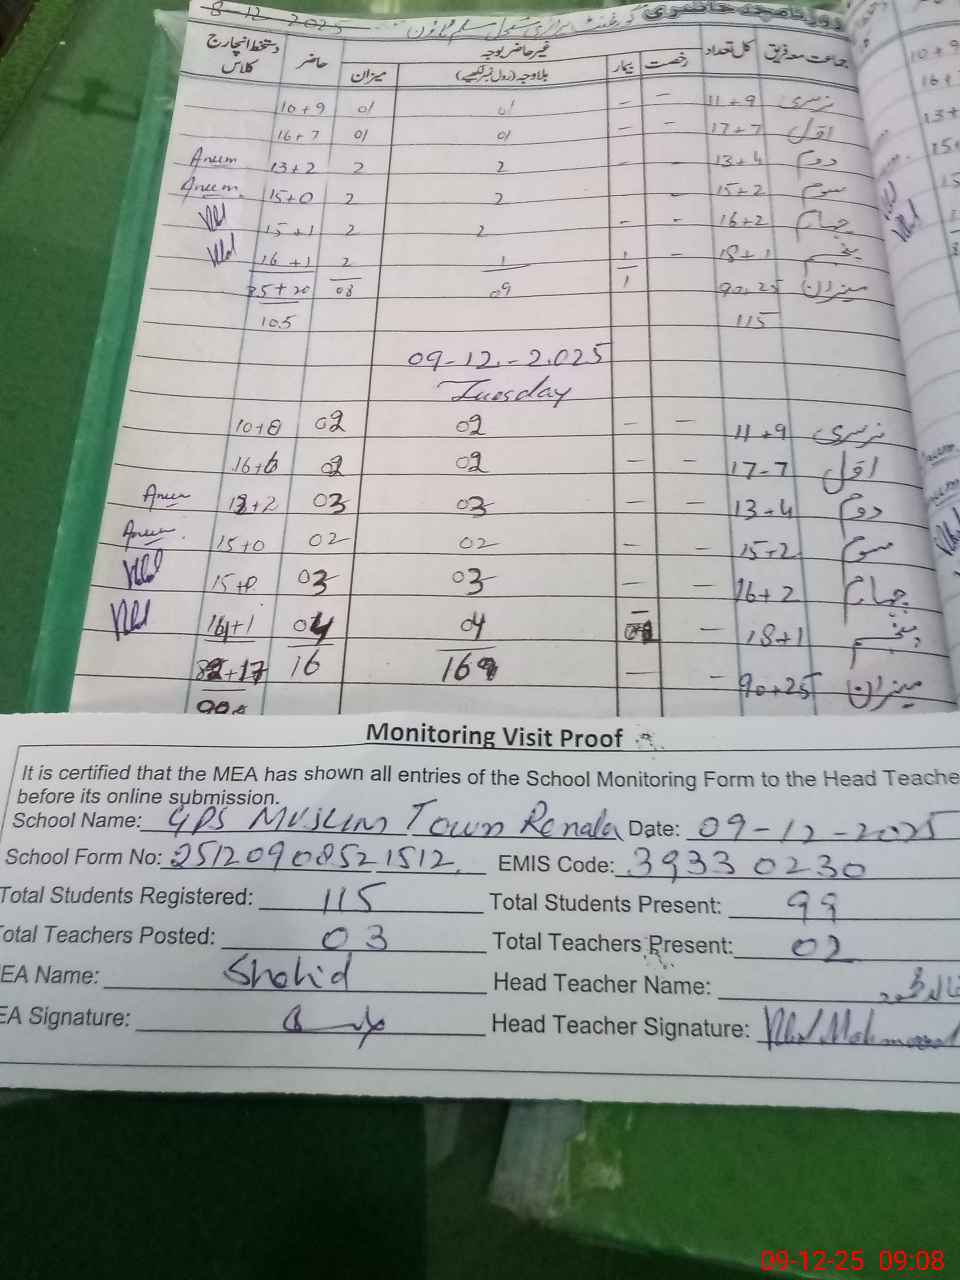 8-12-2025 گورنمنٹ پرائمری سکول مسلم ٹاؤن روزنامچہ حاضری
جماعت معہ فریق کل تعداد غیر حاضر بوجہ حاضر دستخط انچارج کلاس
رخصت بیمار بلاوجہ (رول نمبر لکھیے) میزان
نرسری 11+9 - - 01 01 10+9
اول 17+7 - - 01 01 16+7
دوم 13+4 - - 2 2 13+2 Aneem
سوم 15+2 - 2 2 15+0 Aneem
چہارم 16+2 - - 2 2 15+1
پنجم 18+1 - 1 1 2 16+1
میزان 90+25 1 09 08 85+20
115 105
09-12-2025
Tuesday
نرسری 11+9 - - 02 02 10+8
اول 17-7 - - 02 02 16+6
دوم 13+4 - - 03 03 12+2 Aneem
سوم 15+2 - - 02 02 15+0 Aneem
چہارم 16+2 - - 03 03 15+0
پنجم 18+1 - - 04 04 14+1
میزان 90+25 - - 16 16 82+17
Monitoring Visit Proof
It is certified that the MEA has shown all entries of the School Monitoring Form to the Head Teache
before its online submission.
School Name: GPS Muslim Town Renala Date: 09-12-2025
School Form No: 25120908521512 EMIS Code: 39330230
Total Students Registered: 115 Total Students Present: 99
Total Teachers Posted: 03 Total Teachers Present: 02
EA Name: Shahid Head Teacher Name: خالد محمود
EA Signature: Head Teacher Signature: Khalid Mahmood
09-12-25 09:08